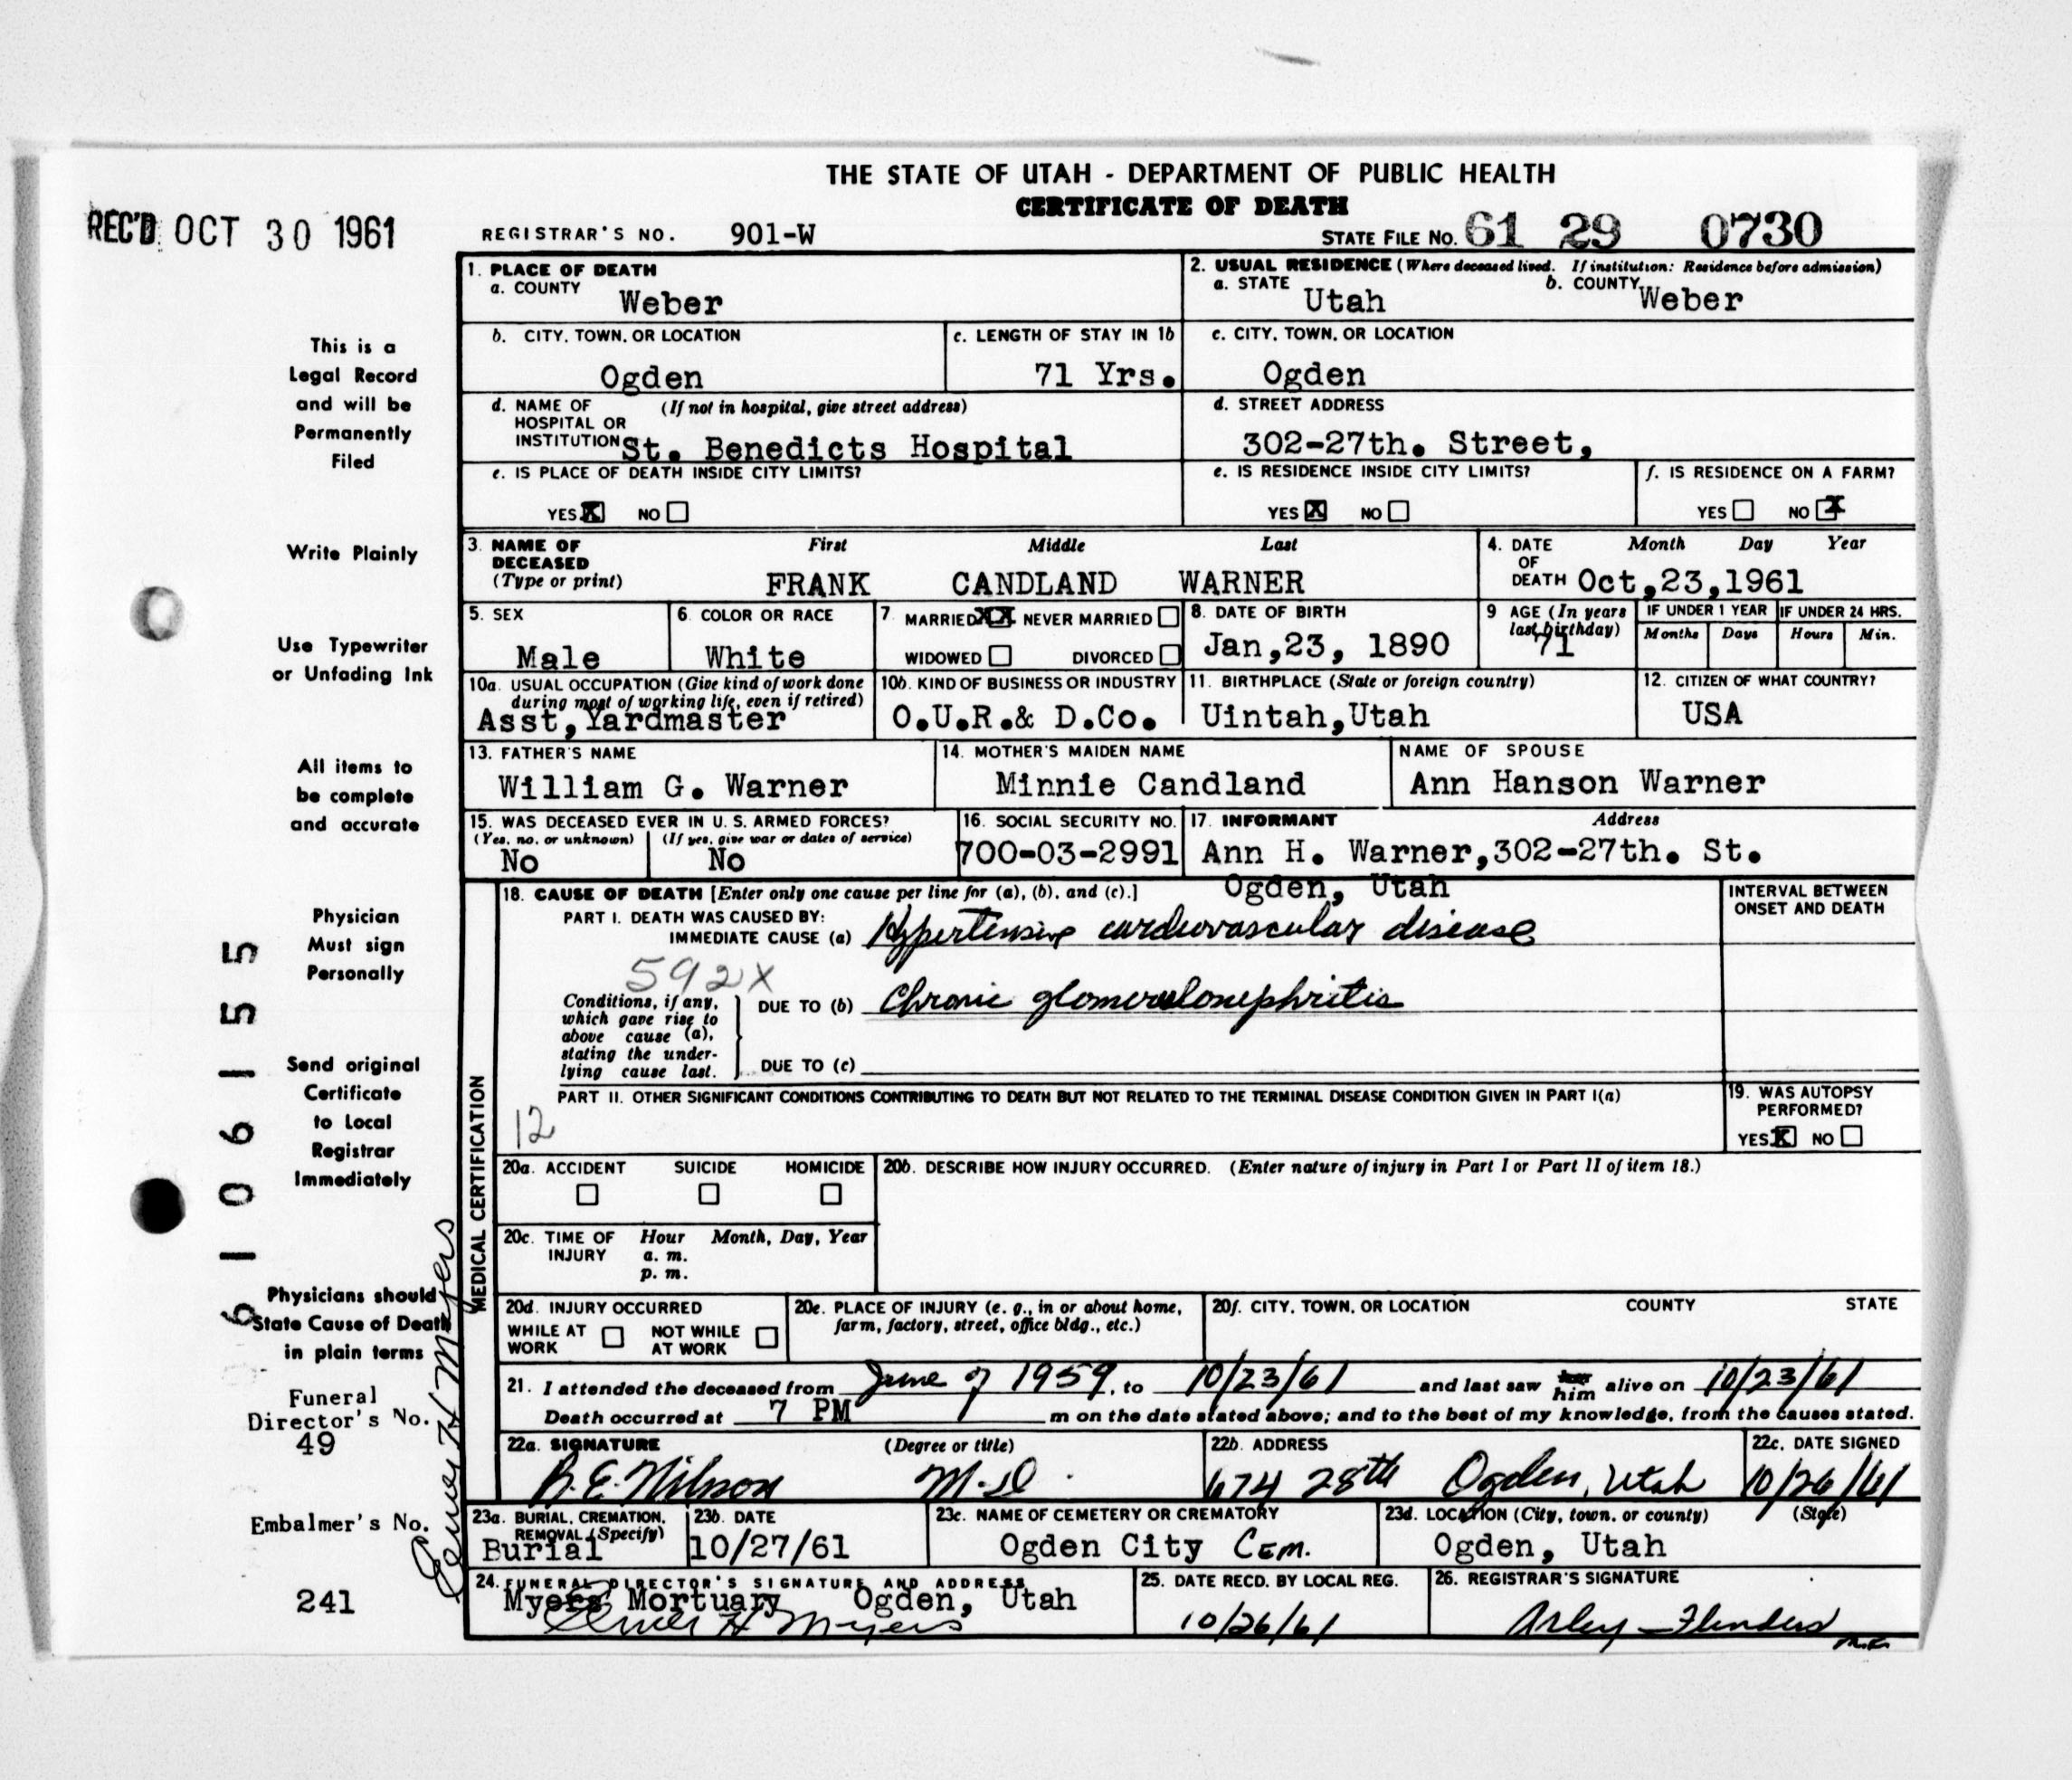 THE STATE OF UTAH - DEPARTMENT OF PUBLIC HEALTH
CERTIFICATE OF DEATH
REC'D OCT 30 1961
REGISTRAR'S NO. 901-W
STATE FILE NO. 61 29 0730
1. PLACE OF DEATH
a. COUNTY Weber
2. USUAL RESIDENCE (Where deceased lived. If institution: Residence before admission)
a. STATE Utah b. COUNTY Weber
b. CITY, TOWN, OR LOCATION Ogden
c. LENGTH OF STAY IN 1b 71 Yrs.
c. CITY, TOWN, OR LOCATION Ogden
d. NAME OF HOSPITAL OR INSTITUTION (If not in hospital, give street address)
St. Benedicts Hospital
d. STREET ADDRESS
302-27th. Street,
e. IS PLACE OF DEATH INSIDE CITY LIMITS?
YES X NO
e. IS RESIDENCE INSIDE CITY LIMITS?
YES X NO
f. IS RESIDENCE ON A FARM?
YES NO X
3. NAME OF DECEASED (Type or print)
First Middle Last
FRANK CANDLAND WARNER
4. DATE OF DEATH Month Day Year
Oct,23,1961
5. SEX Male
6. COLOR OR RACE White
7. MARRIED XX NEVER MARRIED
WIDOWED DIVORCED
8. DATE OF BIRTH
Jan,23, 1890
9 AGE (In years last birthday) 71
IF UNDER 1 YEAR IF UNDER 24 HRS.
Months Days Hours Min.
10a. USUAL OCCUPATION (Give kind of work done during most of working life, even if retired)
Asst,Yardmaster
10b. KIND OF BUSINESS OR INDUSTRY
O.U.R.& D.Co.
11. BIRTHPLACE (State or foreign country)
Uintah,Utah
12. CITIZEN OF WHAT COUNTRY?
USA
13. FATHER'S NAME
William G. Warner
14. MOTHER'S MAIDEN NAME
Minnie Candland
NAME OF SPOUSE
Ann Hanson Warner
15. WAS DECEASED EVER IN U.S. ARMED FORCES?
(Yes, no, or unknown) (If yes, give war or dates of service)
No No
16. SOCIAL SECURITY NO.
700-03-2991
17. INFORMANT Address
Ann H. Warner,302-27th. St.
Ogden, Utah
MEDICAL CERTIFICATION
18. CAUSE OF DEATH [Enter only one cause per line for (a), (b), and (c).]
INTERVAL BETWEEN ONSET AND DEATH
PART I. DEATH WAS CAUSED BY:
IMMEDIATE CAUSE (a) Hypertensive cardiovascular disease
592X
Conditions, if any, which gave rise to above cause (a), stating the underlying cause last.
DUE TO (b) Chronic glomerulonephritis
DUE TO (c)
PART II. OTHER SIGNIFICANT CONDITIONS CONTRIBUTING TO DEATH BUT NOT RELATED TO THE TERMINAL DISEASE CONDITION GIVEN IN PART I(a)
12
19. WAS AUTOPSY PERFORMED?
YES X NO
20a. ACCIDENT SUICIDE HOMICIDE
20b. DESCRIBE HOW INJURY OCCURRED. (Enter nature of injury in Part I or Part II of item 18.)
20c. TIME OF INJURY Hour Month, Day, Year
a. m.
p. m.
20d. INJURY OCCURRED
WHILE AT WORK NOT WHILE AT WORK
20e. PLACE OF INJURY (e. g., in or about home, farm, factory, street, office bldg., etc.)
20f. CITY, TOWN, OR LOCATION COUNTY STATE
21. I attended the deceased from June of 1959, to 10/23/61 and last saw her him alive on 10/23/61
Death occurred at 7 PM m on the date stated above; and to the best of my knowledge, from the causes stated.
22a. SIGNATURE (Degree or title)
M.D.
22b. ADDRESS
674 28th Ogden, Utah
22c. DATE SIGNED
10/26/61
23a. BURIAL, CREMATION, REMOVAL (Specify)
Burial
23b. DATE
10/27/61
23c. NAME OF CEMETERY OR CREMATORY
Ogden City Cem.
23d. LOCATION (City, town, or county) (State)
Ogden, Utah
24. FUNERAL DIRECTOR'S SIGNATURE AND ADDRESS
Myers Mortuary Ogden, Utah
Elmer H Myers
25. DATE RECD. BY LOCAL REG.
10/26/61
26. REGISTRAR'S SIGNATURE
Arley Flinders
This is a
Legal Record
and will be
Permanently
Filed
Write Plainly
Use Typewriter
or Unfading Ink
All items to
be complete
and accurate
Physician
Must sign
Personally
Send original
Certificate
to Local
Registrar
Immediately
Physicians should
State Cause of Death
in plain terms
Funeral
Director's No.
49
Embalmer's No.
241
Elmer H Myers
6106155